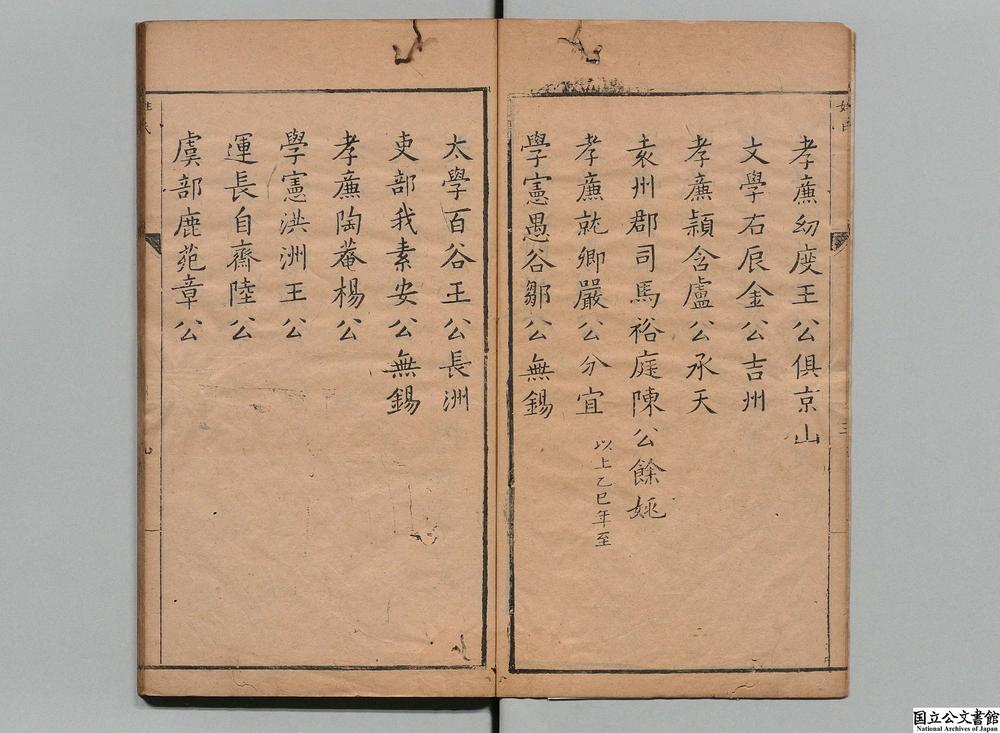 孝廉幼度王公俱京山
文學右辰金公吉州
孝廉穎含盧公承天
袁州郡司馬裕庭陳公餘姚
孝廉就卿嚴公分宜
以上乙巳年至
學憲愚谷鄒公無錫
太學百谷王公長洲
吏部我素安公無錫
孝廉陶菴楊公
學憲洪洲王公
運長自齋陸公
虞部鹿苑章公
姓氏
九
国立公文書館
National Archives of Japan